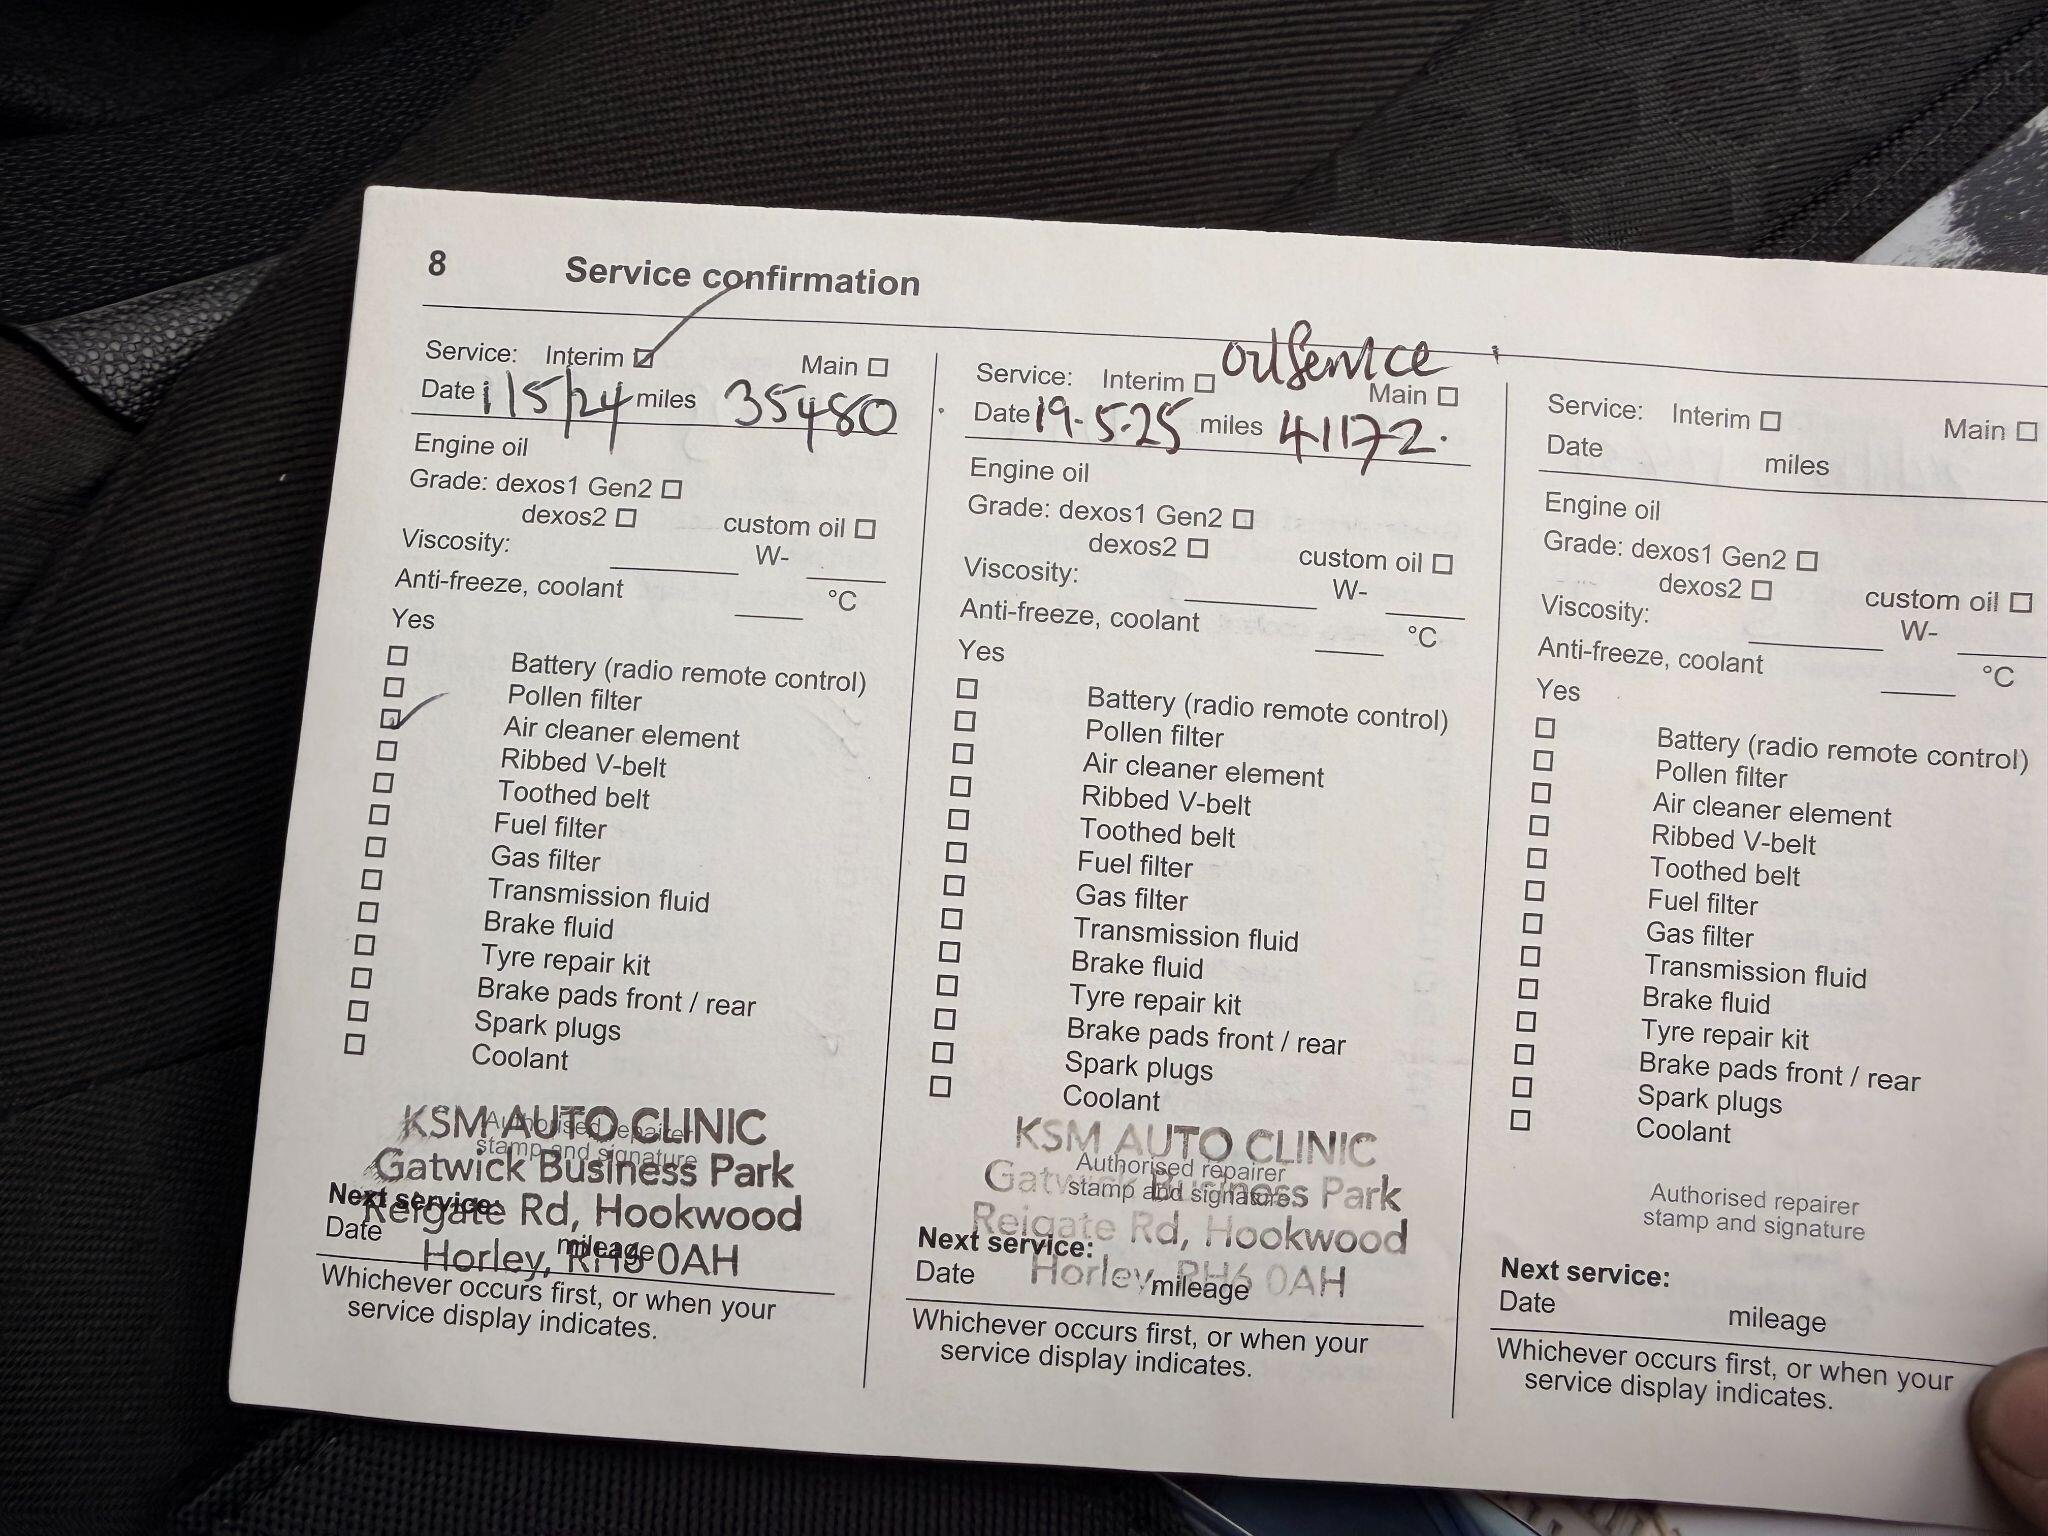 8 Service confirmation
Service: Interim Main
Date 1/5/24 miles 35480
Engine oil
Grade: dexos1 Gen2
dexos2 custom oil
Viscosity: W-
Anti-freeze, coolant °C
Yes
Battery (radio remote control)
Pollen filter
Air cleaner element
Ribbed V-belt
Toothed belt
Fuel filter
Gas filter
Transmission fluid
Brake fluid
Tyre repair kit
Brake pads front / rear
Spark plugs
Coolant
KSM AUTO CLINIC
Authorised repairer
stamp and signature
Gatwick Business Park
Next service:
Reigate Rd, Hookwood
Date mileage
Horley, RH6 0AH
Whichever occurs first, or when your
service display indicates.
oil service
Service: Interim Main
Date 19.5.25 miles 41172.
Engine oil
Grade: dexos1 Gen2
dexos2 custom oil
Viscosity: W-
Anti-freeze, coolant °C
Yes
Battery (radio remote control)
Pollen filter
Air cleaner element
Ribbed V-belt
Toothed belt
Fuel filter
Gas filter
Transmission fluid
Brake fluid
Tyre repair kit
Brake pads front / rear
Spark plugs
Coolant
KSM AUTO CLINIC
Authorised repairer
Gatwick Business Park
stamp and signature
Reigate Rd, Hookwood
Next service:
Horley, RH6 0AH
Date mileage
Whichever occurs first, or when your
service display indicates.
Service: Interim Main
Date miles
Engine oil
Grade: dexos1 Gen2
dexos2 custom oil
Viscosity: W-
Anti-freeze, coolant °C
Yes
Battery (radio remote control)
Pollen filter
Air cleaner element
Ribbed V-belt
Toothed belt
Fuel filter
Gas filter
Transmission fluid
Brake fluid
Tyre repair kit
Brake pads front / rear
Spark plugs
Coolant
Authorised repairer
stamp and signature
Next service:
Date mileage
Whichever occurs first, or when your
service display indicates.